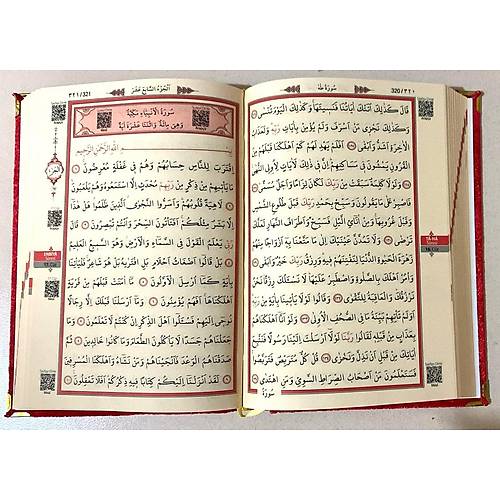 ٣٢٠/320
سُورَةُ طٰهٰ
قَالَ كَذٰلِكَ اَتَتْكَ اٰيَاتُنَا فَنَسِيتَهَا وَكَذٰلِكَ الْيَوْمَ تُنْسٰى
وَكَذٰلِكَ نَجْزِي مَنْ اَسْرَفَ وَلَمْ يُؤْمِنْ بِاٰيَاتِ رَبِّهِ وَلَعَذَابُ
الْاٰخِرَةِ اَشَدُّ وَاَبْقٰى اَفَلَمْ يَهْدِ لَهُمْ كَمْ اَهْلَكْنَا قَبْلَهُمْ مِنَ
الْقُرُونِ يَمْشُونَ فِي مَسَاكِنِهِمْ اِنَّ فِي ذٰلِكَ لَاٰيَاتٍ لِاُولِي النُّهٰى
وَلَوْلَا كَلِمَةٌ سَبَقَتْ مِنْ رَبِّكَ لَكَانَ لِزَامًا وَاَجَلٌ مُسَمًّى
فَاصْبِرْ عَلٰى مَا يَقُولُونَ وَسَبِّحْ بِحَمْدِ رَبِّكَ قَبْلَ طُلُوعِ الشَّمْسِ
وَقَبْلَ غُرُوبِهَا وَمِنْ اٰنَائِ الَّيْلِ فَسَبِّحْ وَاَطْرَافَ النَّهَارِ لَعَلَّكَ
تَرْضٰى وَلَا تَمُدَّنَّ عَيْنَيْكَ اِلٰى مَا مَتَّعْنَا بِهِ اَزْوَاجًا مِنْهُمْ
زَهْرَةَ الْحَيٰوةِ الدُّنْيَا لِنَفْتِنَهُمْ فِيهِ وَرِزْقُ رَبِّكَ خَيْرٌ وَاَبْقٰى
وَأْمُرْ اَهْلَكَ بِالصَّلٰوةِ وَاصْطَبِرْ عَلَيْهَا لَا نَسْـَٔلُكَ رِزْقًا نَحْنُ
نَرْزُقُكَ وَالْعَاقِبَةُ لِلتَّقْوٰى وَقَالُوا لَوْلَا يَأْتِينَا بِاٰيَةٍ مِنْ رَبِّهِ
اَوَلَمْ تَأْتِهِمْ بَيِّنَةُ مَا فِي الصُّحُفِ الْاُولٰى وَلَوْ اَنَّا اَهْلَكْنَاهُمْ
بِعَذَابٍ مِنْ قَبْلِهِ لَقَالُوا رَبَّنَا لَوْلَا اَرْسَلْتَ اِلَيْنَا رَسُولًا فَنَتَّبِعَ
اٰيَاتِكَ مِنْ قَبْلِ اَنْ نَذِلَّ وَنَخْزٰى قُلْ كُلٌّ مُتَرَبِّصٌ فَتَرَبَّصُوا
فَسَتَعْلَمُونَ مَنْ اَصْحَابُ الصِّرَاطِ السَّوِيِّ وَمَنِ اهْتَدٰى
سُورَةُ
TÂ-HÂ
16. Cüz
اَلْجُزْءُ السَّابِعَ عَشَرَ
٣٢١/321
سُورَةُ الْاَنْبِيَاءِ مَكِّيَّةٌ
وَهِيَ مِائَةٌ وَاثْنَتَا عَشْرَةَ اٰيَةً
بِسْمِ اللّٰهِ الرَّحْمٰنِ الرَّحِيمِ
اِقْتَرَبَ لِلنَّاسِ حِسَابُهُمْ وَهُمْ فِي غَفْلَةٍ مُعْرِضُونَ
مَا يَأْتِيهِمْ مِنْ ذِكْرٍ مِنْ رَبِّهِمْ مُحْدَثٍ اِلَّا اسْتَمَعُوهُ وَهُمْ يَلْعَبُونَ
لَاهِيَةً قُلُوبُهُمْ وَاَسَرُّوا النَّجْوٰى الَّذِينَ ظَلَمُوا هَلْ هٰذَا
اِلَّا بَشَرٌ مِثْلُكُمْ اَفَتَأْتُونَ السِّحْرَ وَاَنْتُمْ تُبْصِرُونَ قَالَ
رَبِّي يَعْلَمُ الْقَوْلَ فِي السَّمَاءِ وَالْاَرْضِ وَهُوَ السَّمِيعُ الْعَلِيمُ
بَلْ قَالُوا اَضْغَاثُ اَحْلَامٍ بَلِ افْتَرٰيهُ بَلْ هُوَ شَاعِرٌ فَلْيَأْتِنَا
بِاٰيَةٍ كَمَا اُرْسِلَ الْاَوَّلُونَ مَا اٰمَنَتْ قَبْلَهُمْ مِنْ قَرْيَةٍ
اَهْلَكْنَاهَا اَفَهُمْ يُؤْمِنُونَ وَمَا اَرْسَلْنَا قَبْلَكَ اِلَّا رِجَالًا
نُوحِي اِلَيْهِمْ فَسْـَٔلُوا اَهْلَ الذِّكْرِ اِنْ كُنْتُمْ لَا تَعْلَمُونَ وَمَا
جَعَلْنَاهُمْ جَسَدًا لَا يَأْكُلُونَ الطَّعَامَ وَمَا كَانُوا خَالِدِينَ ثُمَّ
صَدَقْنَاهُمُ الْوَعْدَ فَاَنْجَيْنَاهُمْ وَمَنْ نَشَاءُ وَاَهْلَكْنَا الْمُسْرِفِينَ
لَقَدْ اَنْزَلْنَا اِلَيْكُمْ كِتَابًا فِيهِ ذِكْرُكُمْ اَفَلَا تَعْقِلُونَ
ENBİYÂ
17. Cüz